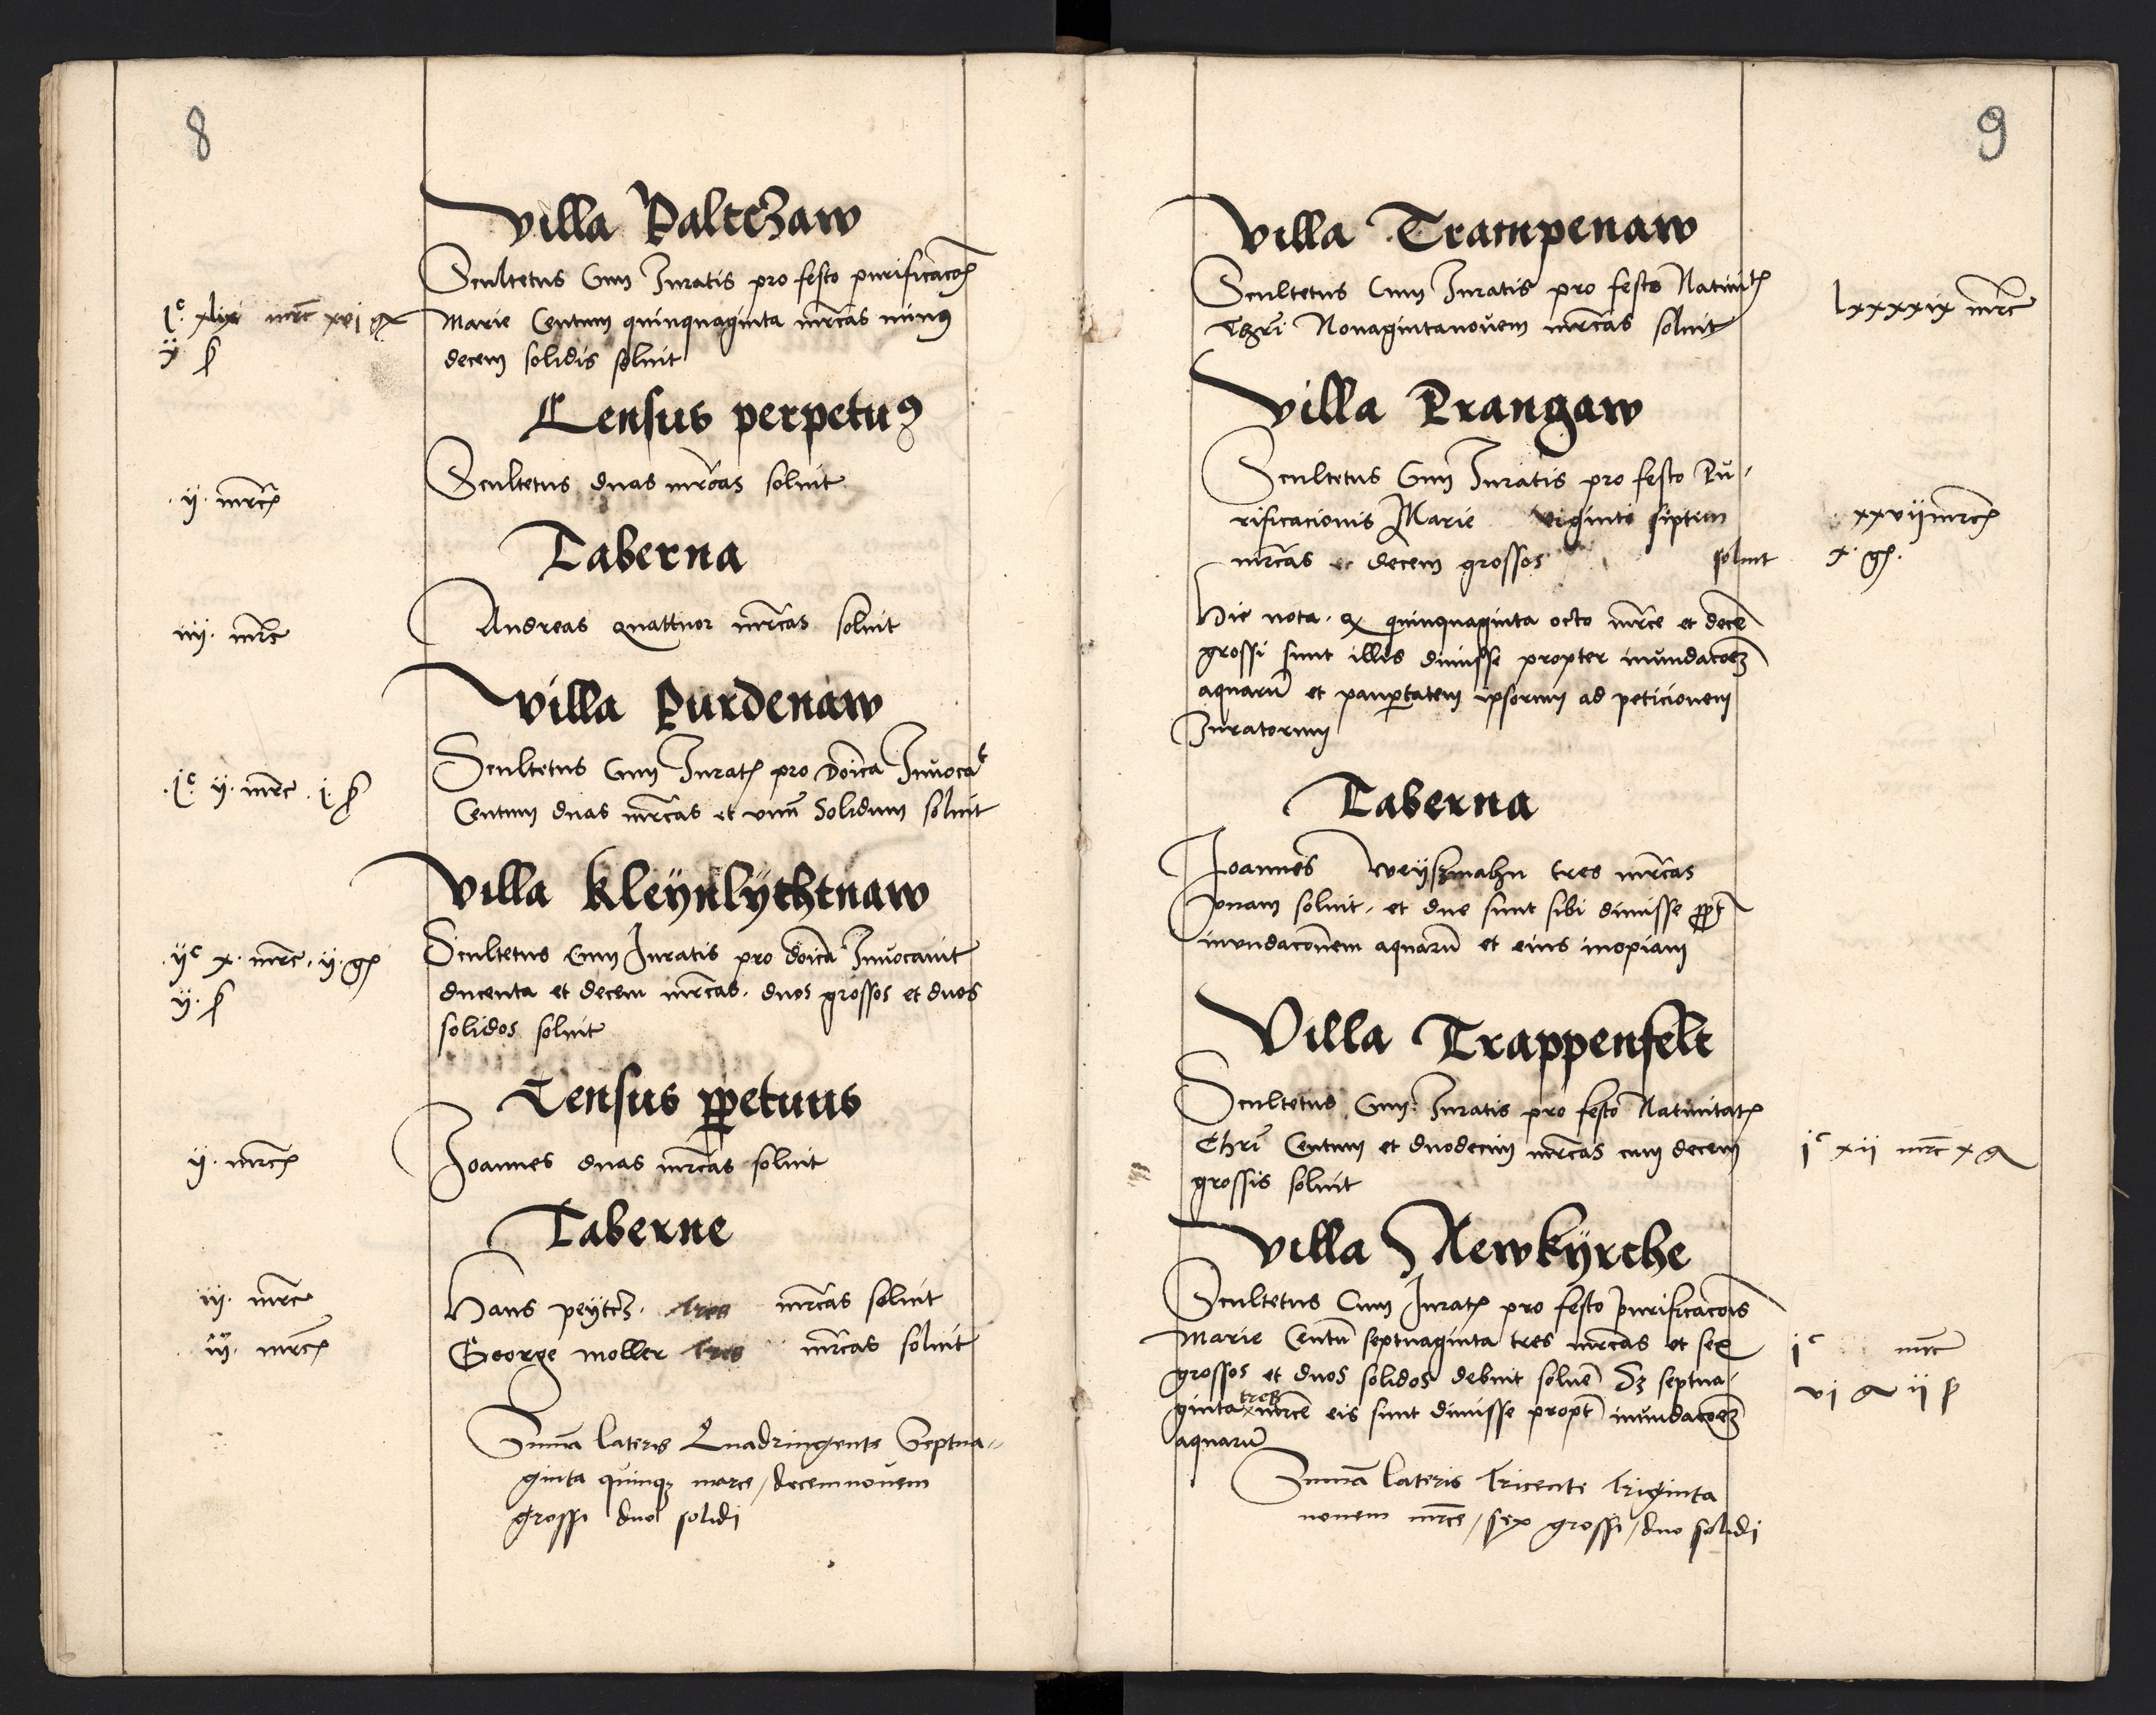 8
Villa Paltczaw
Scultetus Cum Juratis pro festo purificacoͤ
Marie Centum quinquaginta mrcas minus
decem solidis soluit
jᶜ xlix mrc xvj gr
ij ß
Census perpetuꝰ
Scultetus duas mrcas soluit
.ij. mrc
Taberna
Andreas quattuor mrcas soluit
iiij. mrc
Villa Purdenaw
Scultetus Cum Jurat pro doica Inuocat
Centum duas mrcas et vnū Solidum soluit
.jᶜ. ij. mrc .j. ß
Villa Kleÿnlÿchtnaw
Scultetus Cum Juratis pro doica Inuocauit
ducenta et decem mrcas. duos grossos et duos
solidos soluit
.ijᶜ x. mrc. ij. gr
ij. ß
Census ꝑpetuus
Joannes duas mrcas soluit
ij. mrc
Taberne
Hans peÿtcz. tres mrcas soluit
iij. mrc
George moller tres mrcas soluit
iij. mrc
Summa lateris Quadringente Septua-
ginta quinqꝫ marce / decemnouem
grossi duo solidi
9
Villa Trampenaw
Scultetus Cum Juratis pro festo Natiuit
Chri Nonagintanouem mrcas soluit
lxxxxix mrc
Villa Prangaw
Scultetus Cum Juratis pro festo Pu-
rificacionis Marie viginti septem
mrcas et decem grossos soluit
xxvij mrc
x. gr.
Hic nota. ꝙ quinquaginta octo mrce et decē
grossi sunt illis dimisse propter inundacoēꝫ
aquarū et paupertatem ipsorum ad peticionem
Juratorum
Taberna
Joannes weÿszmahn tres mrcas
vnam soluit. et due sunt sibi dimisse ꝓpt
inundaconem aquarū et eius inopiam
Villa Trappenfelt
Scultetus Cum Juratis pro festo Natiuitat
Chri Centum et duodecim mrcas cum decem
grossis soluit
jᶜ xij mrc x gr
Villa Newkÿrche
Scultetus Cum Jurat pro festo purificacois
Marie Centū septuaginta tres mrcas et sex
grossos et duos solidos debuit soluē Sꝫ septua-
ginta tres mrce eis sunt dimisse propt inundacoēꝫ
aquarū
jᶜ mrc
vj gr ij ß
Summa lateris Tricente Triginta
nouem mrce / sex grossi / duo solidi